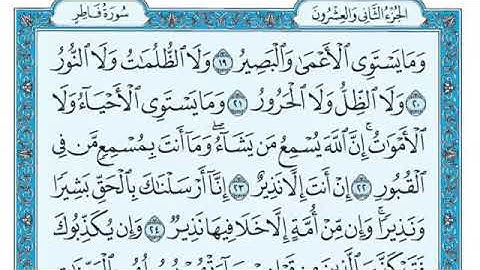 الجُزْءُ الثَّانِى وَالعِشْرُونَ سُورَةُ فَاطِرٍ
وَمَا يَسْتَوِى ٱلْأَعْمَىٰ وَٱلْبَصِيرُ ١٩ وَلَا ٱلظُّلُمَٰتُ وَلَا ٱلنُّورُ
٢٠ وَلَا ٱلظِّلُّ وَلَا ٱلْحَرُورُ ٢١ وَمَا يَسْتَوِى ٱلْأَحْيَآءُ وَلَا
ٱلْأَمْوَٰتُ ۚ إِنَّ ٱللَّهَ يُسْمِعُ مَن يَشَآءُ ۖ وَمَآ أَنتَ بِمُسْمِعٍ مَّن فِى
ٱلْقُبُورِ ٢٢ إِنْ أَنتَ إِلَّا نَذِيرٌ ٢٣ إِنَّآ أَرْسَلْنَٰكَ بِٱلْحَقِّ بَشِيرًا
وَنَذِيرًا ۚ وَإِن مِّنْ أُمَّةٍ إِلَّا خَلَا فِيهَا نَذِيرٌ ٢٤ وَإِن يُكَذِّبُوكَ